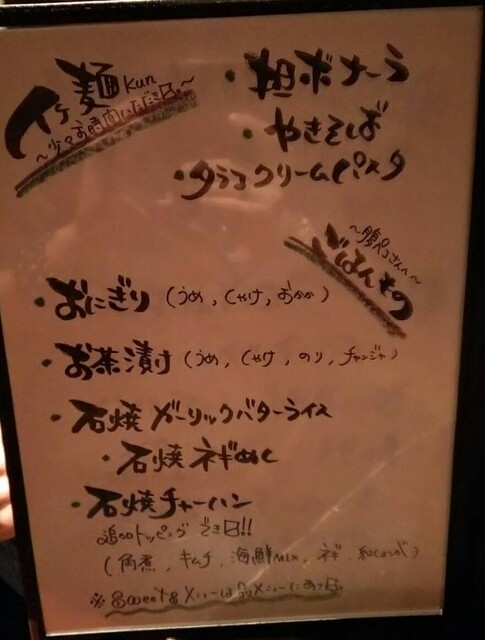 イケ麺kun
～少々お時間いただき日。～
・担ボナーラ
・やきそば
・タラコクリームパスタ
～腹ペコさんへ～
ごはんもの
・おにぎり（うめ，しゃけ，おかか）
・お茶漬け（うめ，しゃけ，のり，チャンジャ）
・石焼ガーリックバターライス
・石焼ネギめし
・石焼チャーハン
追加トッピングでき日!!
（角煮，キムチ，海鮮MIX，ネギ，
※Sweet&メニューは別メニューにあり日。